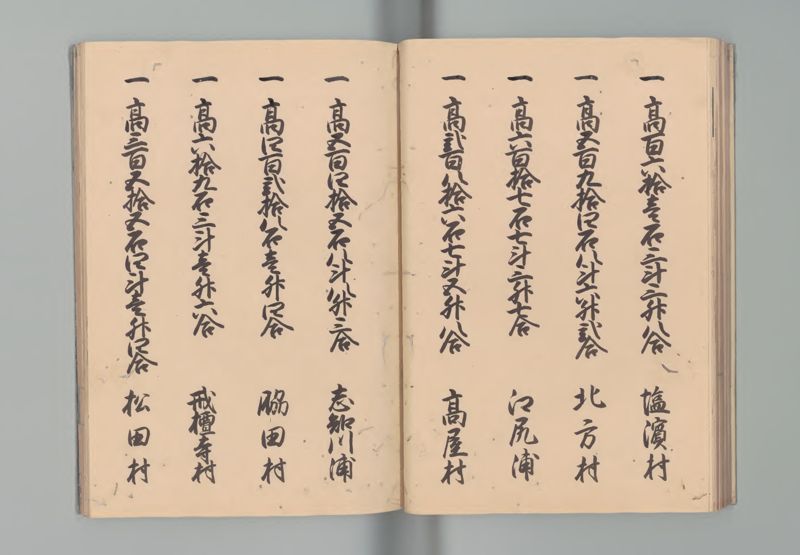 一 高百六拾壱石三斗二升八合 塩濱村
一 高五百九拾四石八斗六升弐合 北方村
一 高六百拾七石七斗二升七合 江尻浦
一 高弐百八拾六石七斗五升八合 高屋村
一 高五百四拾五石八斗八升三合 志知川浦
一 高四百弐拾八石壱升四合 脇田村
一 高六拾九石三斗壱升六合 戒檀寺村
一 高三百五拾五石四斗壱升四合 松田村